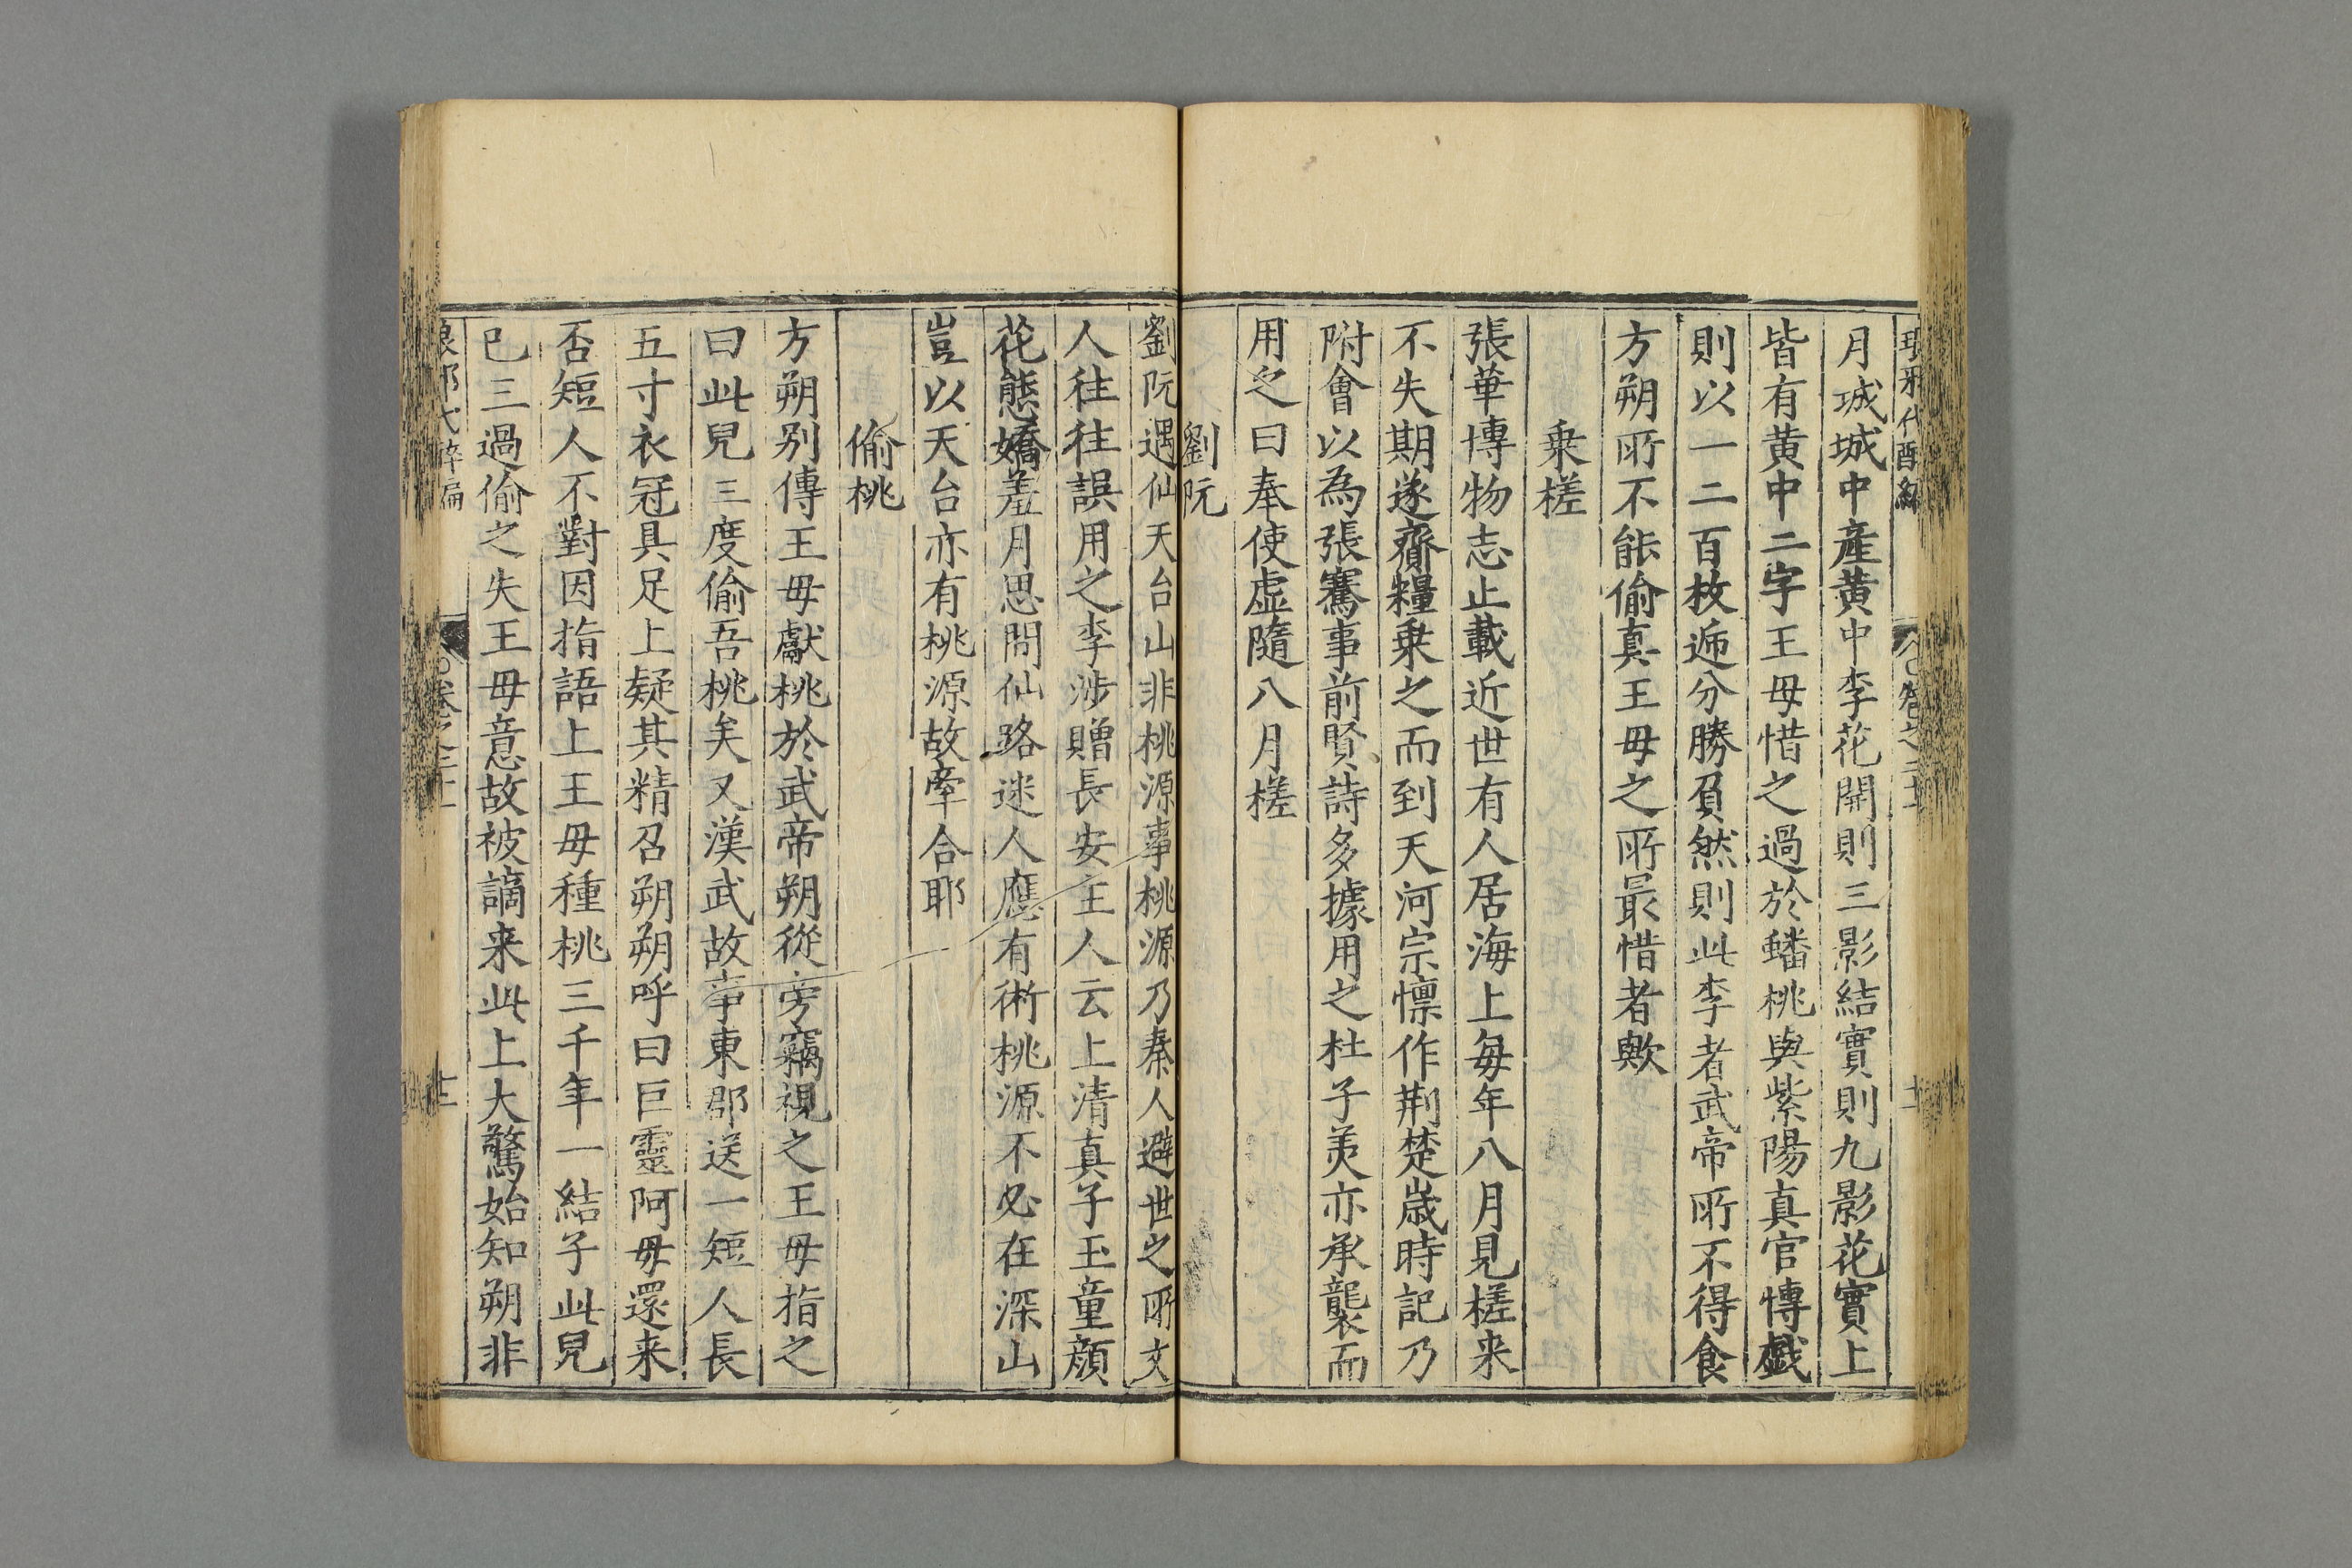 月城城中產黄中李花開則三影結實則九影花實上
皆有黄中二字王母惜之過於蟠桃與紫陽真官慱戱
則以一二百枚遞分勝負然則此李者武帝所不得食
方朔所不能偷真王母之所最惜者歟
乗槎
張華博物志止載近世有人居海上每年八月見槎来
不失期遂齎糧乗之而到天河宗懔作荆楚歳時記乃
附會以為張騫事前賢詩多據用之杜子美亦承襲而
用之曰奉使虚隨八月槎
劉阮
劉阮遇仙天台山非桃源事桃源乃秦人避世之所文
人往往誤用之李涉贈長安主人云上清真子玉童顔
花態嬌羞月思閒仙路迷人應有術桃源不必在深山
豈以天台亦有桃源故牽合耶
偷桃
方朔别傳王母獻桃於武帝朔從旁竊視之王母指之
曰此兒三度偷吾桃矣又漢武故事東郡送一短人長
五寸衣冠具足上疑其精召朔朔呼曰巨靈阿母還来
否短人不對因指語上王母種桃三千年一結子此兒
已三過偷之失王母意故被謫来此上大驚始知朔非